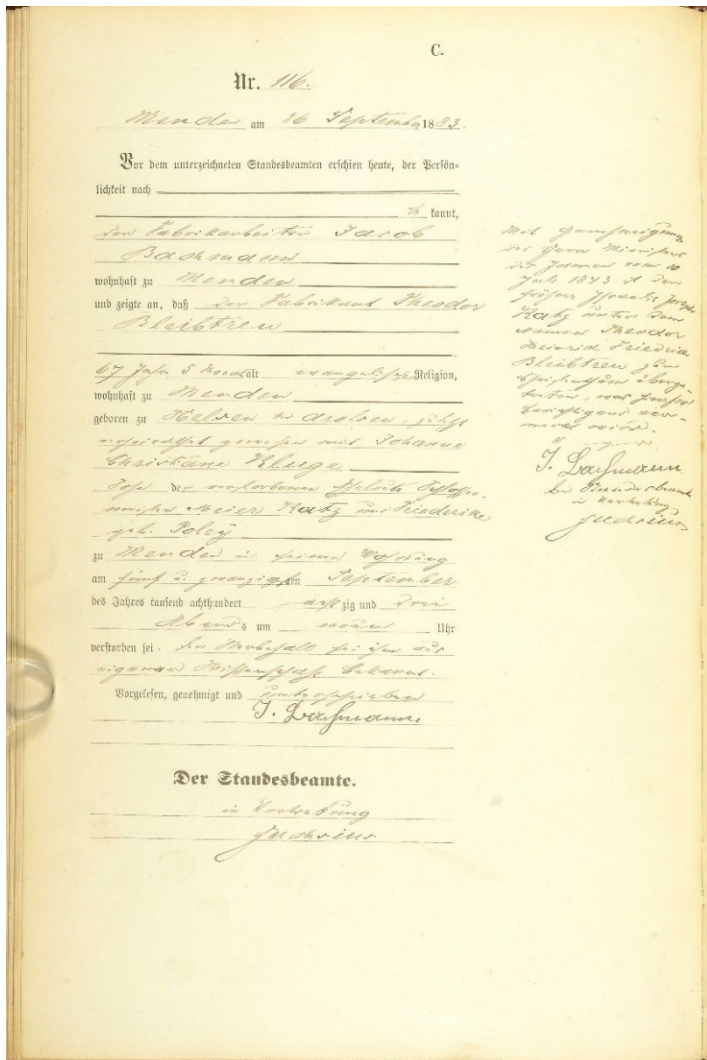 C.
Nr. 116.
Menden am 26 September 1883.
Vor dem unterzeichneten Standesbeamten erschien heute, der Persön-
lichkeit nach
be kannt,
der Fabrikarbeiter Jacob
Bachmann
wohnhaft zu Menden
und zeigte an, daß der Fabrikant Theodor
Bleibtreu
67 Jahr 5 Monat alt evangelischer Religion,
wohnhaft zu Menden
geboren zu Helsen bei Arolsen,
verheirathet gewesen mit Johanne
Christiane Kluge
Sohn der verstorbenen Eheleute
Meier Katz und Friederike
geb. Poley
zu Menden in seiner Wohnung
am fünf u. zwanzigsten September
des Jahres tausend achthundert acht zig und drei
Abends um neun Uhr
verstorben sei. Der Sterbefall sei ihm aus
eigener Wissenschaft bekannt.
Vorgelesen, genehmigt und unterschrieben
J. Bachmann.
Der Standesbeamte.
in Vertretung
Mit Genehmigung
des Herrn Ministers
des Innern vom 10
Juli 1843 ist der
frühere Israelit Joseph
Katz unter dem
Namen Theodor
Heinrich Friedrich
Bleibtreu zum
Christenthum überge-
treten, was hierher
berichtigend ver-
merkt wird.
J. Bachmann
Der Standesbeamte
in Vertretung